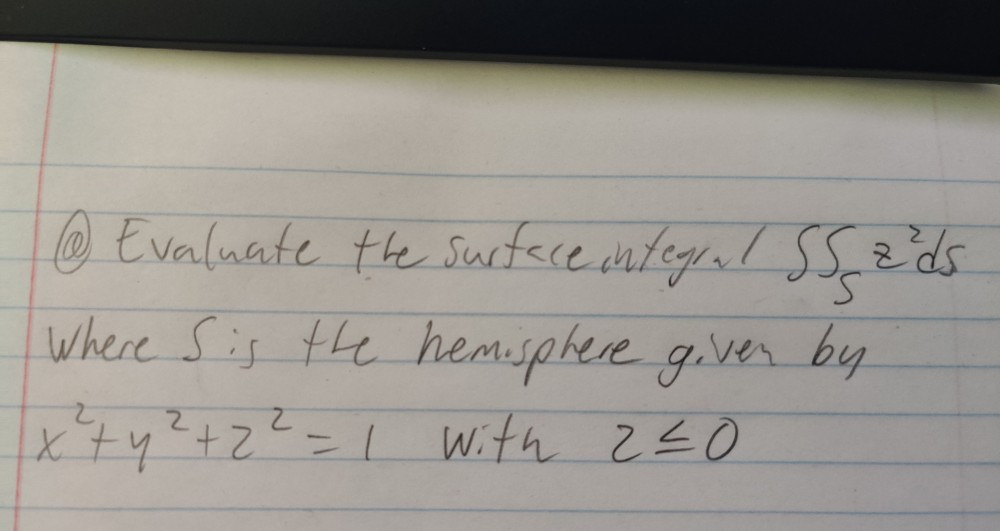 ⓐ Evaluate the surface integral ∬_S z²ds
Where S is the hemisphere given by
x²+y²+z²=1 with z≤0